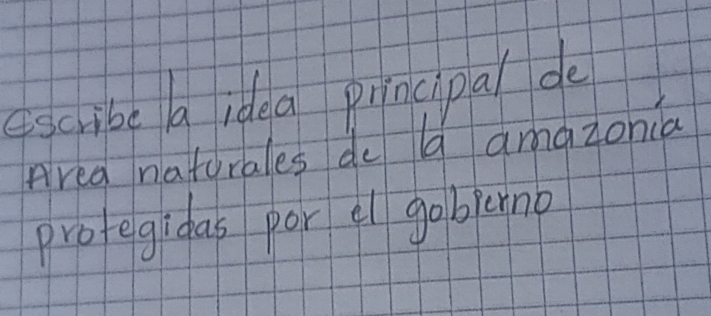 Escribe la idea principal de
Area naturales de la amazonía
protegidas por el gobierno